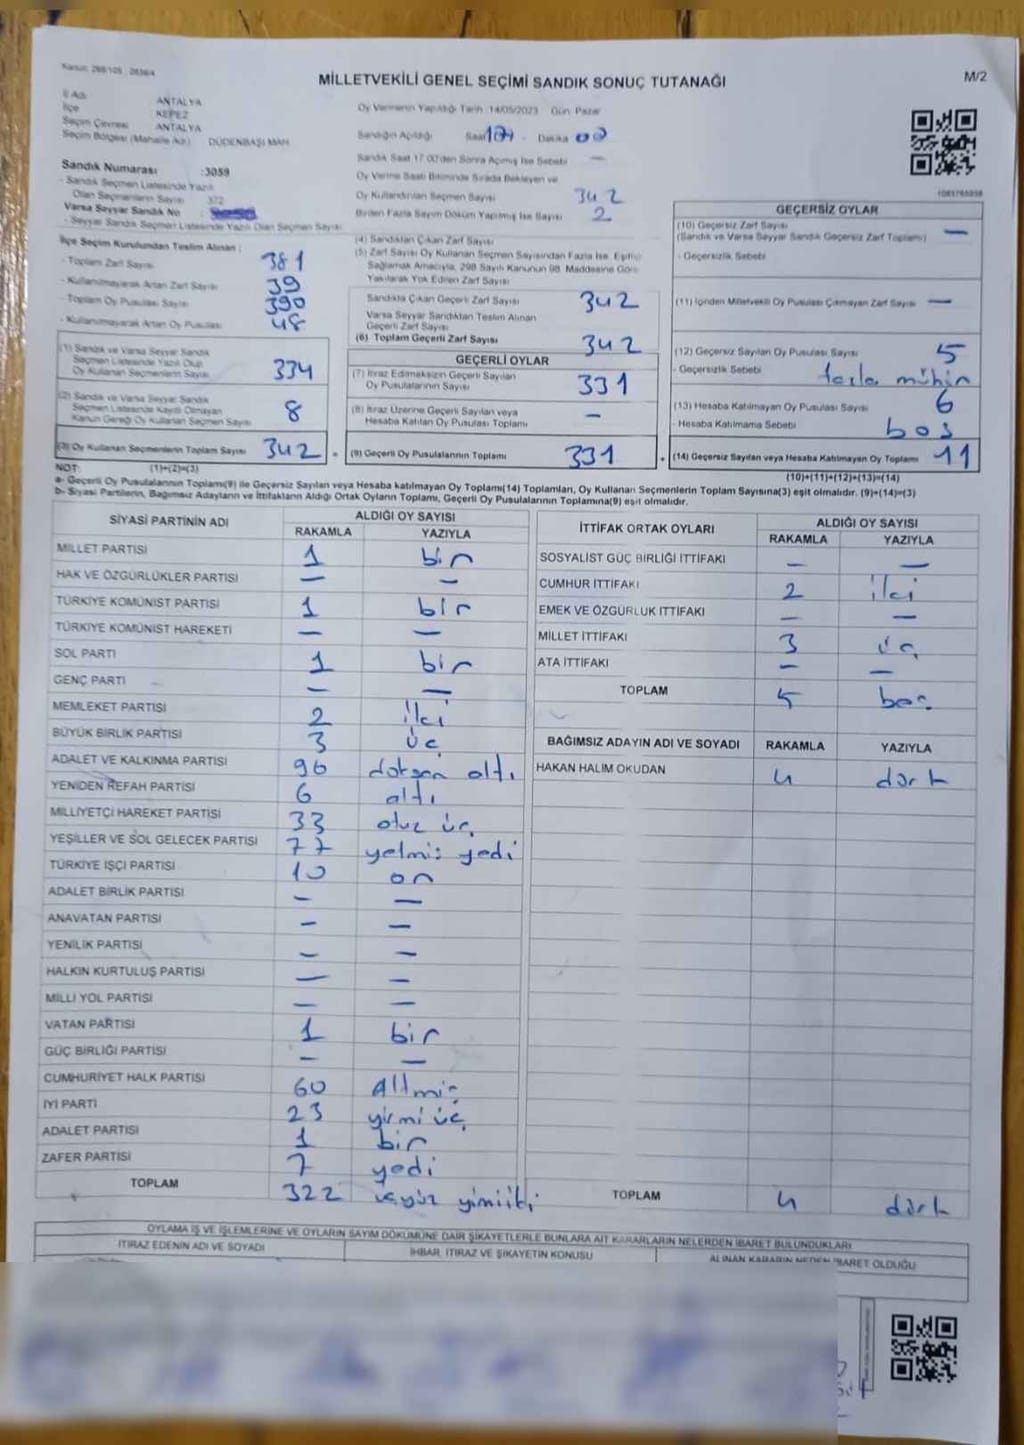 Kanun: 298/105 , 2839/4
MİLLETVEKİLİ GENEL SEÇİMİ SANDIK SONUÇ TUTANAĞI
M/2
İl Adı ANTALYA
İlçe KEPEZ
Seçim Çevresi ANTALYA
Seçim Bölgesi (Mahalle Adı) DÜDENBAŞI MAH.
Sandık Numarası :3059
- Sandık Seçmen Listesinde Yazılı
Olan Seçmenlerin Sayısı 372
Varsa Seyyar Sandık No :
- Seyyar Sandık Seçmen Listesinde Yazılı Olan Seçmen Sayısı
İlçe Seçim Kurulundan Teslim Alınan ;
- Toplam Zarf Sayısı 381
- Kullanılmayarak Artan Zarf Sayısı 39
- Toplam Oy Pusulası Sayısı 390
- Kullanılmayarak Artan Oy Pusulası 48
(1) Sandık ve Varsa Seyyar Sandık
Seçmen Listesinde Yazılı Olup
Oy Kullanan Seçmenlerin Sayısı 334
(2) Sandık ve Varsa Seyyar Sandık
Seçmen Listesinde Kayıtlı Olmayan
Kanun Gereği Oy Kullanan Seçmen Sayısı 8
(3) Oy Kullanan Seçmenlerin Toplam Sayısı 342 =
Oy Vermenin Yapıldığı Tarih :14/05/2023 Gün: Pazar
Sandığın Açıldığı Saat 17 - Dakika 00
Sandık Saat 17.00'den Sonra Açılmış İse Sebebi —
Oy Verme Saati Bitiminde Sırada Bekleyen ve
Oy Kullandırılan Seçmen Sayısı 342
Birden Fazla Sayım Döküm Yapılmış İse Sayısı 2
(4) Sandıktan Çıkan Zarf Sayısı
(5) Zarf Sayısı Oy Kullanan Seçmen Sayısından Fazla İse, Eşitliği
Sağlamak Amacıyla, 298 Sayılı Kanunun 98. Maddesine Göre
Yakılarak Yok Edilen Zarf Sayısı
Sandıkta Çıkan Geçerli Zarf Sayısı 342
Varsa Seyyar Sandıktan Teslim Alınan
Geçerli Zarf Sayısı
(6) Toplam Geçerli Zarf Sayısı 342
GEÇERLİ OYLAR
(7) İtiraz Edilmeksizin Geçerli Sayılan
Oy Pusulalarının Sayısı 331
(8) İtiraz Üzerine Geçerli Sayılan veya
Hesaba Katılan Oy Pusulası Toplamı —
(9) Geçerli Oy Pusulalarının Toplamı 331 +
GEÇERSİZ OYLAR
(10) Geçersiz Zarf Sayısı
(Sandık ve Varsa Seyyar Sandık Geçersiz Zarf Toplamı) —
- Geçersizlik Sebebi
(11) İçinden Milletvekili Oy Pusulası Çıkmayan Zarf Sayısı —
(12) Geçersiz Sayılan Oy Pusulası Sayısı 5
- Geçersizlik Sebebi fazla mühür
(13) Hesaba Katılmayan Oy Pusulası Sayısı 6
- Hesaba Katılmama Sebebi boş
(14) Geçersiz Sayılan veya Hesaba Katılmayan Oy Toplamı 11
NOT: (1)+(2)=(3) (10)+(11)+(12)+(13)=(14)
a- Geçerli Oy Pusulaları Toplamı(9) ile Geçersiz Sayılan veya Hesaba katılmayan Oy Toplamı(14) Toplamları, Oy Kullanan Seçmenlerin Toplam Sayısına(3) eşit olmalıdır. (9)+(14)=(3)
b- Siyasi Partilerin, Bağımsız Adayların ve İttifakların Aldığı Ortak Oyların Toplamı, Geçerli Oy Pusulalarının Toplamına(9) eşit olmalıdır.
SİYASİ PARTİNİN ADI ALDIĞI OY SAYISI
RAKAMLA YAZIYLA
MİLLET PARTİSİ 1 bir
HAK VE ÖZGÜRLÜKLER PARTİSİ — —
TÜRKİYE KOMÜNİST PARTİSİ 1 bir
TÜRKİYE KOMÜNİST HAREKETİ — —
SOL PARTİ 1 bir
GENÇ PARTİ — —
MEMLEKET PARTİSİ 2 iki
BÜYÜK BİRLİK PARTİSİ 3 üç
ADALET VE KALKINMA PARTİSİ 96 doksan altı
YENİDEN REFAH PARTİSİ 6 altı
MİLLİYETÇİ HAREKET PARTİSİ 33 otuz üç
YEŞİLLER VE SOL GELECEK PARTİSİ 77 yetmiş yedi
TÜRKİYE İŞÇİ PARTİSİ 10 on
ADALET BİRLİK PARTİSİ — —
ANAVATAN PARTİSİ — —
YENİLİK PARTİSİ — —
HALKIN KURTULUŞ PARTİSİ — —
MİLLİ YOL PARTİSİ — —
VATAN PARTİSİ 1 bir
GÜÇ BİRLİĞİ PARTİSİ — —
CUMHURİYET HALK PARTİSİ 60 Altmış
İYİ PARTİ 23 yirmi üç
ADALET PARTİSİ 1 bir
ZAFER PARTİSİ 7 yedi
TOPLAM 322 üçyüz yirmiiki
İTTİFAK ORTAK OYLARI ALDIĞI OY SAYISI
RAKAMLA YAZIYLA
SOSYALİST GÜÇ BİRLİĞİ İTTİFAKI — —
CUMHUR İTTİFAKI 2 iki
EMEK VE ÖZGÜRLÜK İTTİFAKI — —
MİLLET İTTİFAKI 3 üç
ATA İTTİFAKI — —
TOPLAM 5 beş
BAĞIMSIZ ADAYIN ADI VE SOYADI RAKAMLA YAZIYLA
HAKAN HALİM OKUDAN 4 dört
TOPLAM 4 dört
OYLAMA İŞ VE İŞLEMLERİNE VE OYLARIN SAYIM DÖKÜMÜNE DAİR ŞİKAYETLERLE BUNLARA AİT KARARLARIN NELERDEN İBARET BULUNDUKLARI
İTİRAZ EDENİN ADI VE SOYADI İHBAR, İTİRAZ VE ŞİKAYETİN KONUSU ALINAN KARARIN NEDEN İBARET OLDUĞU